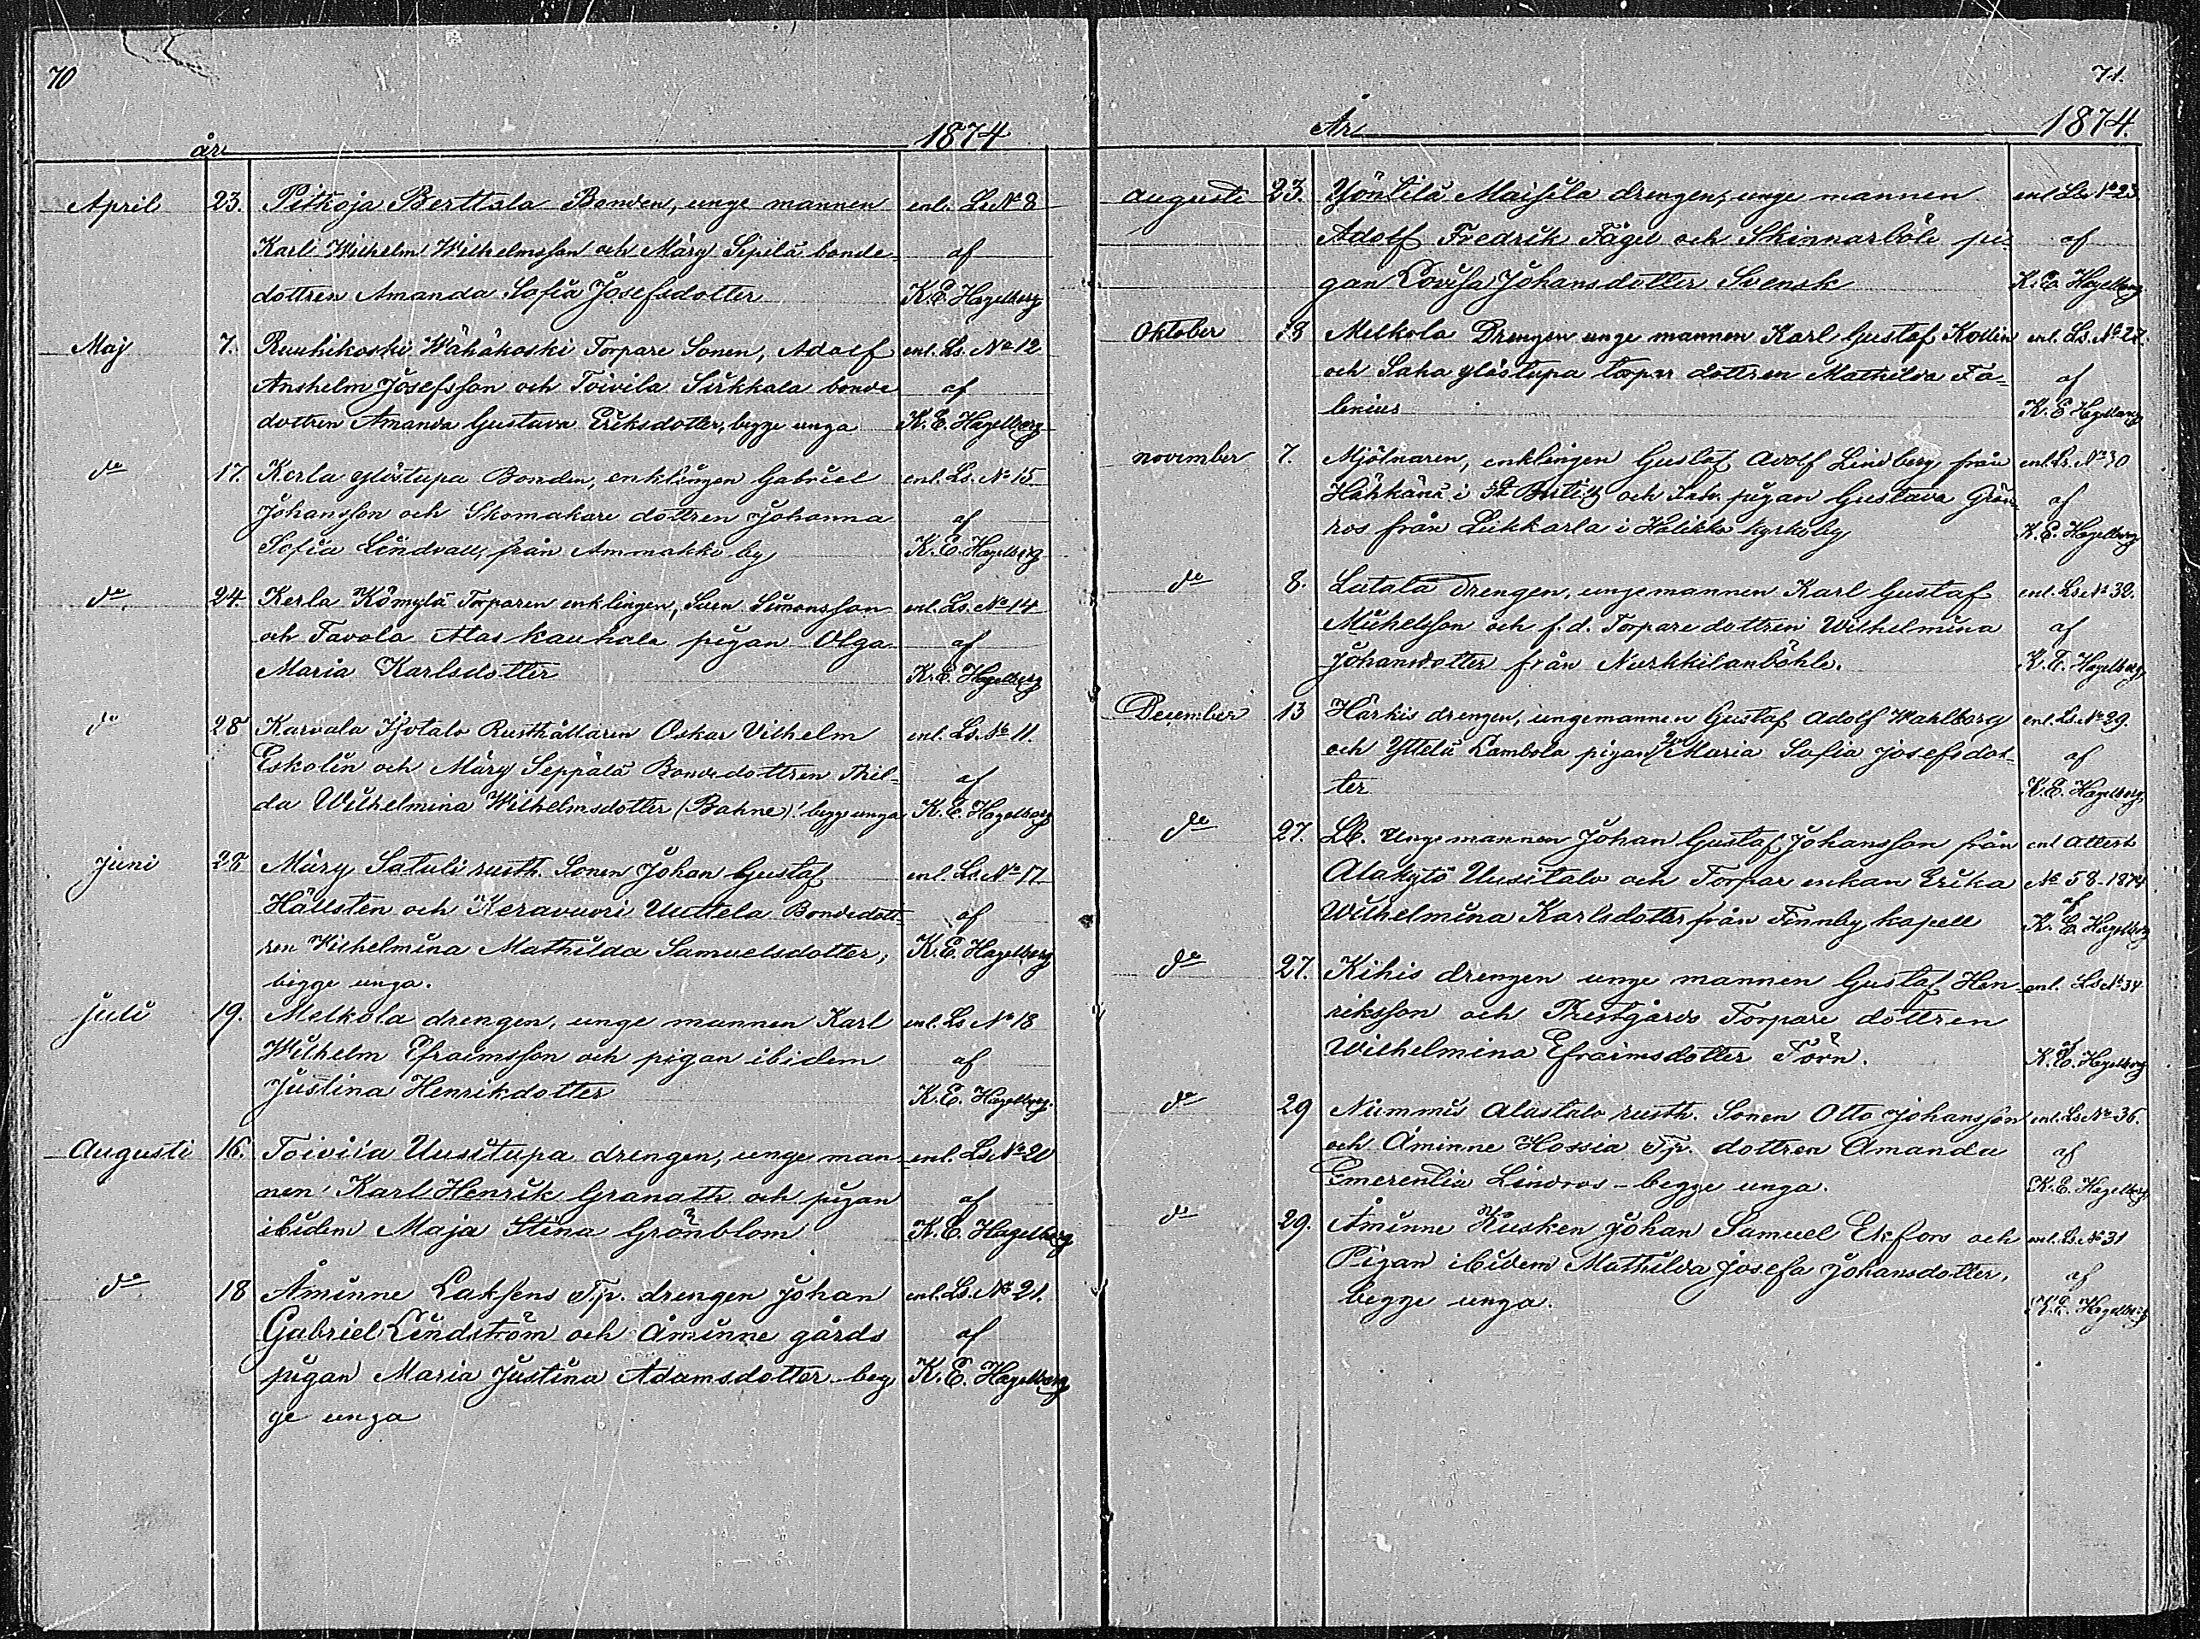 70
år 1874
April 23. Pitkoja Berttala Bonden, unge mannen enl. Ls № 8
Karl Wilhelm Wilhelmsson och Märy Sipilä bonde- af
dottren Amanda Sofia Josefsdotter K. E. Hagelberg
Maj 7. Ruuhikoski Wähäkoski Torpare Sonen, Adolf enl. Ls. No 12
Anshelm Josefsson och Toivila Sirkkala bonde af
dottren Amanda Gustava Eriksdotter, begge unga K. E. Hagelberg
do 17. Kerla ylöstupa Bonden, enklingen Gabriel enl. Ls. № 15
Johansson och Skomakare dottren Johanna af
Sofia Lindvall, från Ammakki by K. E. Hagelberg
do 24. Kerla Kömylä Torparen enklingen, Sven Simonsson enl. Ls. № 14
och Tavola Alas kauhala pigan Olga af
Maria Karlsdotter K. E. Hagelberg
do 28 Karvala Isotalo Rusthållaren Oskar Vilhelm enl. Ls. № 11.
Eskolin och Märy Seppälä Bondedottren Thil- af
da Wilhelmina Wilhelmsdotter (Bahne)! begge unga K. E. Hagelberg
Juni 28 Märy Satuli rusth. Sonen Johan Gustaf enl. Ls № 17
Hällsten och Keravuori Uutela Bondedott- af
ren Wilhelmina Mathilda Samuelsdotter, K. E. Hagelberg
begge unga.
Juli 19. Melkola drengen, unge mannen Karl enl. Ls № 18
Wilhelm Efraimsson och pigan ibidem af
Justina Henrikdotter K. E. Hagelberg.
Augusti 16. Toivila Uusitupa drengen, unge man- enl. Ls № 20
nen Karl Henrik Granath och pigan af
ibidem Maja Stina Grönblom K. E. Hagelberg
do 18 Åminne Laksens Tp. drengen Johan enl. Ls. № 21.
Gabriel Lindström och Åminne gårds af
pigan Maria Justina Adamsdotter beg K. E. Hagelberg
ge unga
71.
År 1874.
augusti 23. Yöntilä Maisila drengen, unge mannen enl Ls № 23
Adolf Fredrik Fägel och Skinnarböle pi- af
gan Lovisa Johansdotter Svensk K. E. Hagelberg
Oktober 18 Melkola Drengen unge mannen Karl Gustaf Kollin enl. Ls. № 27.
och Saha ylöstupa torpar dottren Mathilda Fa- af
lenius K. E. Hagelberg
november 7. Mjölnaren, enklingen Gustaf Adolf Lindberg från enl. Ls. № 30
i och pigan Gustava Grön- af
ros från i Halikko kyrkoby K. E. Hagelberg
do 8. Lutala Drengen, ungemannen Karl Gustaf enl. Ls № 32.
Mickelsson och f. d. Torpare dottren Wilhelmina af
Johansdotter från Nurkkilanböhle. K. E. Hagelberg,
December 13 Härkis drengen, ungemannen Gustaf Adolf Wahlborg enl. Ls. № 29.
och Yttelä Lambola pigan Maria Sofia Josefsdot- af
ter K. E. Hagelberg,
do 27. Unge mannen Johan Gustaf Johansson från enl Attest
Alakytö Uusitalo och Torpar enkan Erika № 58. 1874
Wilhelmina Karlsdotter från Finnby kapell af K. E. Hagelberg
do 27. Kihis drengen unge mannen Gustaf Hen- enl. Ls № 34
riksson och Prestgårds Torpare dottren af
Wilhelmina Efraimsdotter Törn. K. E. Hagelberg
do 29 Nummis Alastalo rusth. Sonen Otto Johansson enl. Ls № 36.
och Åminne Hossia Tp. dottren Amanda af
Emerentia Lindros - begge unga. K. E. Hagelberg
do 29. Åminne Kusken Johan Samuel Ekfors och enl. Ls. № 31
Pigan ibidem Mathilda Josefa Johansdotter, af
begge unga. K. E. Hagelberg